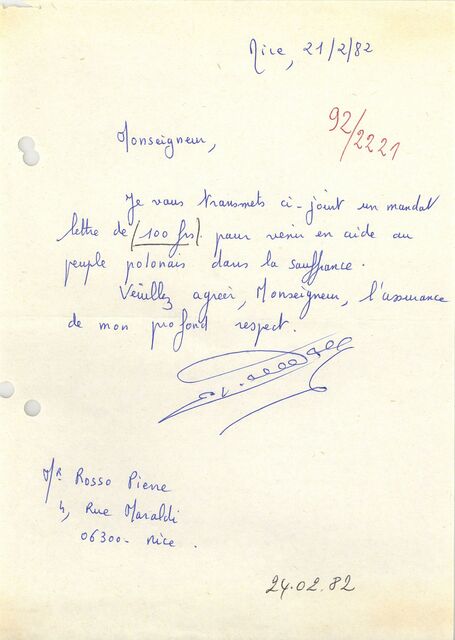 Nice, 21/2/82
92/2221
Monseigneur,
Je vous transmets ci-joint un mandat
lettre de (100 frs) pour venir en aide au
peuple polonais dans la souffrance.
Veuillez agréer, Monseigneur, l'assurance
de mon profond respect.
Mr Rosso Pierre
4, Rue Maraldi
06300 - Nice.
24.02.82